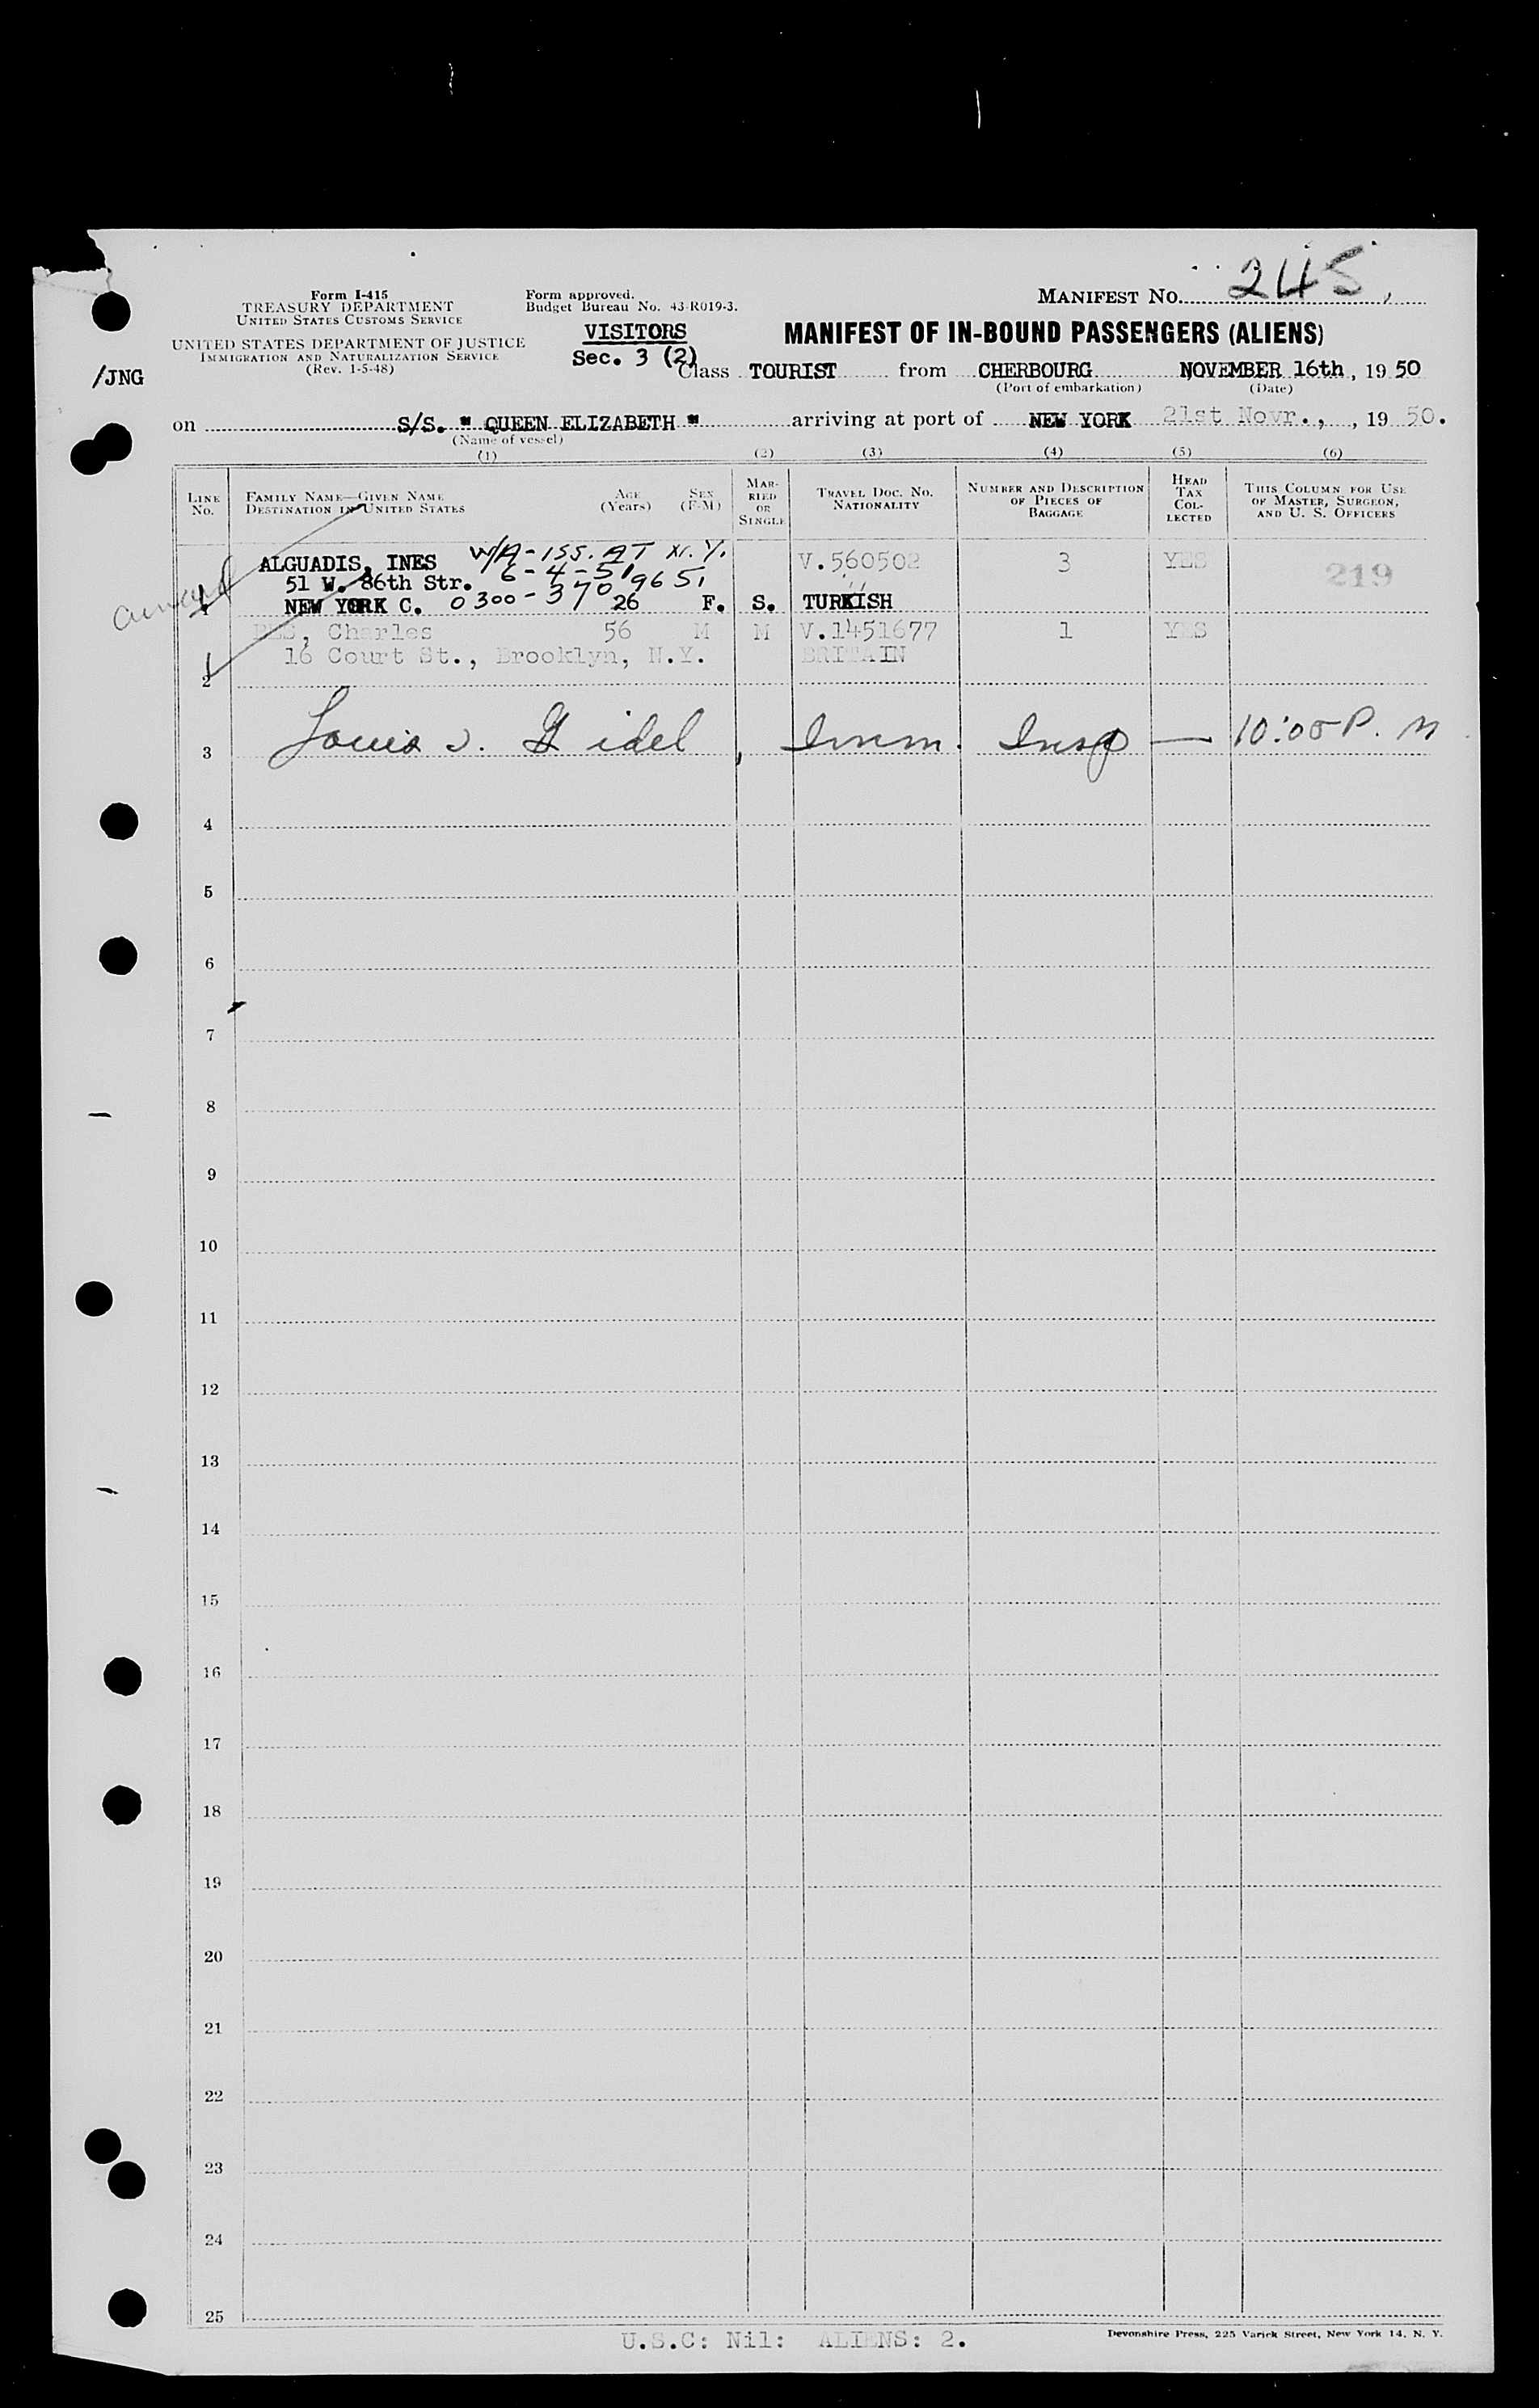 MANIFEST NO. 245
Form I-415
TREASURY DEPARTMENT
UNITED STATES CUSTOMS SERVICE
UNITED STATES DEPARTMENT OF JUSTICE
IMMIGRATION AND NATURALIZATION SERVICE
(Rev. 1-5-48)
Form approved.
Budget Bureau No. 43-R019-3.
VISITORS
Sec. 3 (2)
MANIFEST OF IN-BOUND PASSENGERS (ALIENS)
/JNG
Class TOURIST from CHERBOURG NOVEMBER 16th, 19 50
(Port of embarkation) (Date)
on S/S. " QUEEN ELIZABETH " arriving at port of NEW YORK 21st Novr., , 19 50.
(Name of vessel)
(1) (2) (3) (4) (5) (6)
LINE NO.
FAMILY NAME—GIVEN NAME
DESTINATION IN UNITED STATES
AGE (Years)
SEX (F-M)
MARRIED OR SINGLE
TRAVEL DOC. NO.
NATIONALITY
NUMBER AND DESCRIPTION
OF PIECES OF
BAGGAGE
HEAD
TAX
COL-
LECTED
THIS COLUMN FOR USE
OF MASTER, SURGEON,
AND U. S. OFFICERS
ALGUADIS, INES W/A-ISS. AT N.Y. V.560502 3 YES 219
51 W. 86th Str. 6-4-51
NEW YORK C. 0300-370 9651 26 F. S. TURKISH
Charles 56 M M V.1451677 1 YES
16 Court St., Brooklyn, N.Y. BRITAIN
2
3 Louis J. Gidel, Imm. Insp — 10:05 P. M
4
5
6
7
8
9
10
11
12
13
14
15
16
17
18
19
20
21
22
23
24
25
U.S.C: Nil: ALIENS: 2.
Devonshire Press, 225 Varick Street, New York 14, N. Y.